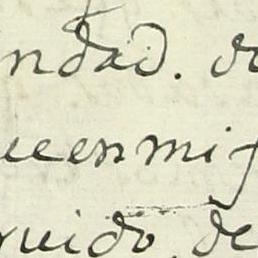 ndad. do
ueenmi
ruido de